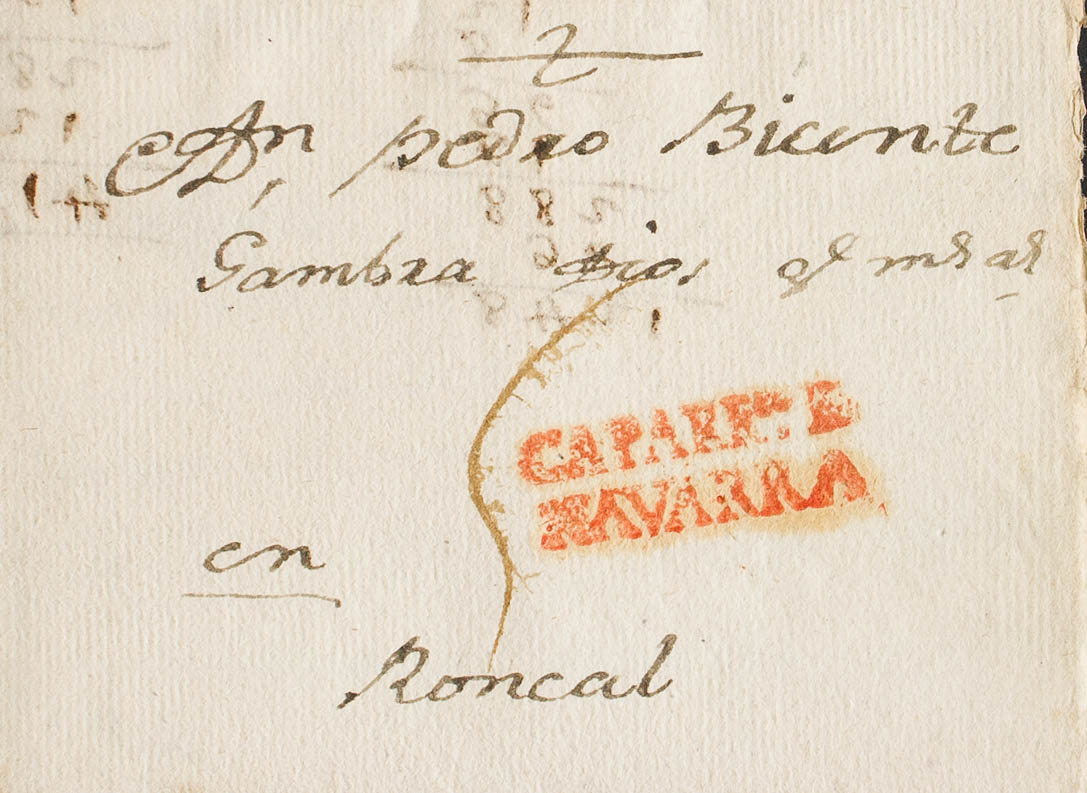 A Dn pedro Bicente
Gambra Dios ge ms as
CAPARR.
NAVARRA
en
Roncal